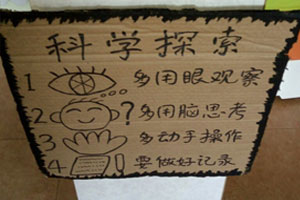 科学探索
1 多用眼观察
2 ? 多用脑思考
3 多动手操作
4 要做好记录